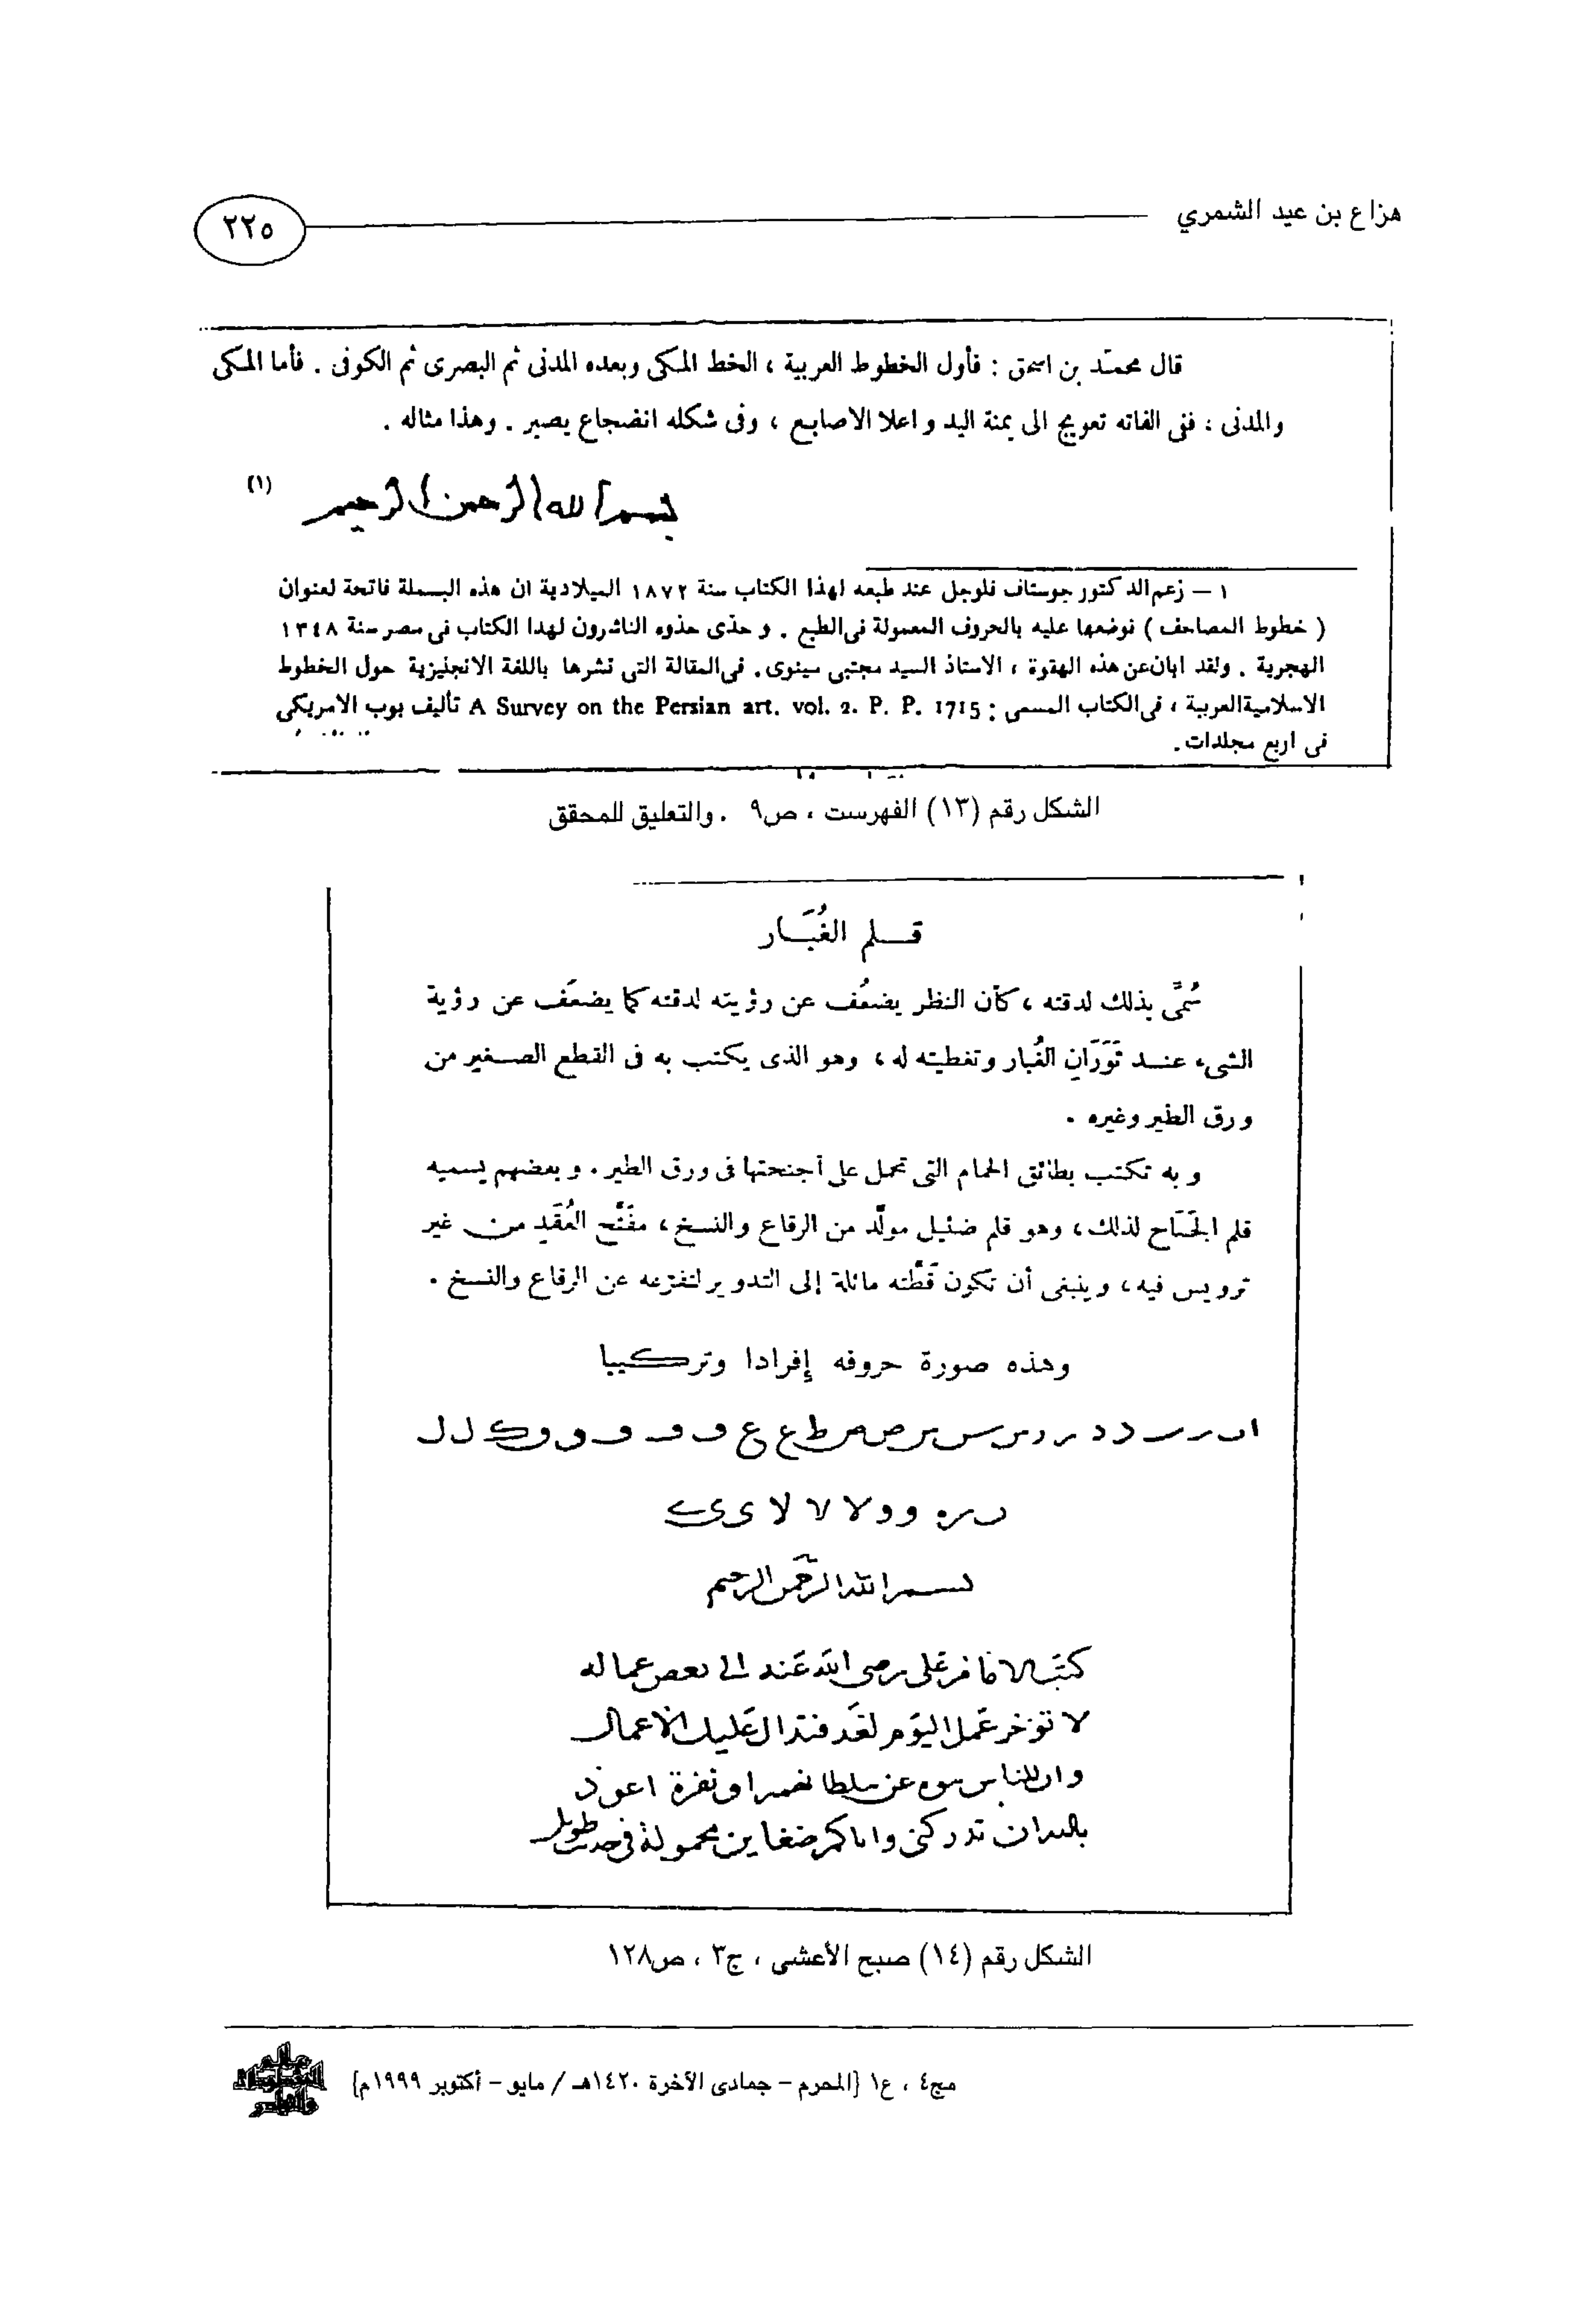 هزاع بن عيد الشمري
٢٢٥
قال محمّد بن اسحق : فأول الخطوط العربية ، الخط المكى وبعده المدنى ثم البصرى ثم الكوفى . فأما المكى
والمدنى ، ففى الفاته تعويج الى يمنة اليد و اعلا الاصابع ، وفى شكله انضجاع يصير . وهذا مثاله .
بسم الله الرحمن الرحيم (١)
١ – زعم الدكتور جوستاف فلوجل عند طبعه لهذا الكتاب سنة ١٨٧٢ الميلادية ان هذه البسملة فاتحة لعنوان
( خطوط المصاحف ) فوضعها عليه بالحروف المعمولة فى الطبع . و حذى حذوه الناشرون لهدا الكتاب فى مصر سنة ١٣٤٨
الهجرية . ولقد ابان عن هذه الهفوة ، الاستاذ السيد مجتبى مينوى . فى المقالة التى نشرها باللغة الانجليزية حول الخطوط
الاسلامية العربية ، فى الكتاب المسمى : A Survey on the Persian art. vol. 2. P. P. 1715 تأليف بوب الامريكى
فى اربع مجلدات .
الشكل رقم (١٣) الفهرست ، ص٩ . والتعليق للمحقق
قلم الغُبَار
سُمِّىَ بذلك لدقته ، كأن النظر يضعُف عن رؤيته لدقته كما يضعَف عن رؤية
الشىء عند ثَوَرَانِ الغُبار وتغطيته له ، وهو الذى يكتب به فى القطع الصغير من
ورق الطير وغيره .
و به تكتب بطائق الحمام التى تحمل على أجنحتها فى ورق الطير . و بعضهم يسميه
قلم الجَنَاح لذلك ، وهو قلم ضئيل مولَّد من الرقاع والنسخ ، مفَتَّح العُقَدِ من غير
ترويس فيه ، وينبغى أن تكون قَطَّته مائلة إلى التدوير لتفرّعه عن الرقاع والنسخ .
وهذه صورة حروفه إفرادا وتركيبا
بسم الله الرحمن الرحيم
كتب الامام على رضى الله عنه الى بعض عماله
لا تؤخر عمل اليوم لغد فتدال عليك الاعمال
وان للناس عن سلطانهم او نفرة اعوذ
بالله ان تدركنى واياكم ضغاين محمولة فى
الشكل رقم (١٤) صبح الأعشى ، ج٣ ، ص١٢٨
مج٤ ، ع١ {المحرم – جمادى الآخرة ١٤٢٠هـ / مايو – أكتوبر ١٩٩٩م}
عالم
المخطوطات
والنوادر